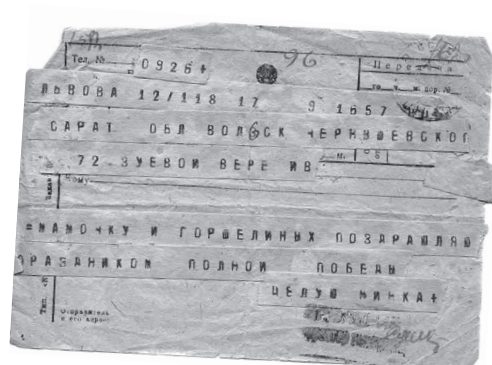 96
Тел. №
0926+
Передача
ЛЬВОВА 12/118 17 9 1657
САРАТ ОБЛ ВОЛЬСК ЧЕРНЫШЕВСКОГ
72 ЗУЕВОЙ ВЕРЕ ИВ
Кому
=МАМОЧКУ И ГОРШЕЛИНЫХ ПОЗАРАЮЛЯЮ
ПРАЗАНИКОМ ПОЛНОЙ ПОБЕДЫ
ЦЕЛУЮ МИНКА+
Отправитель
и его адрес